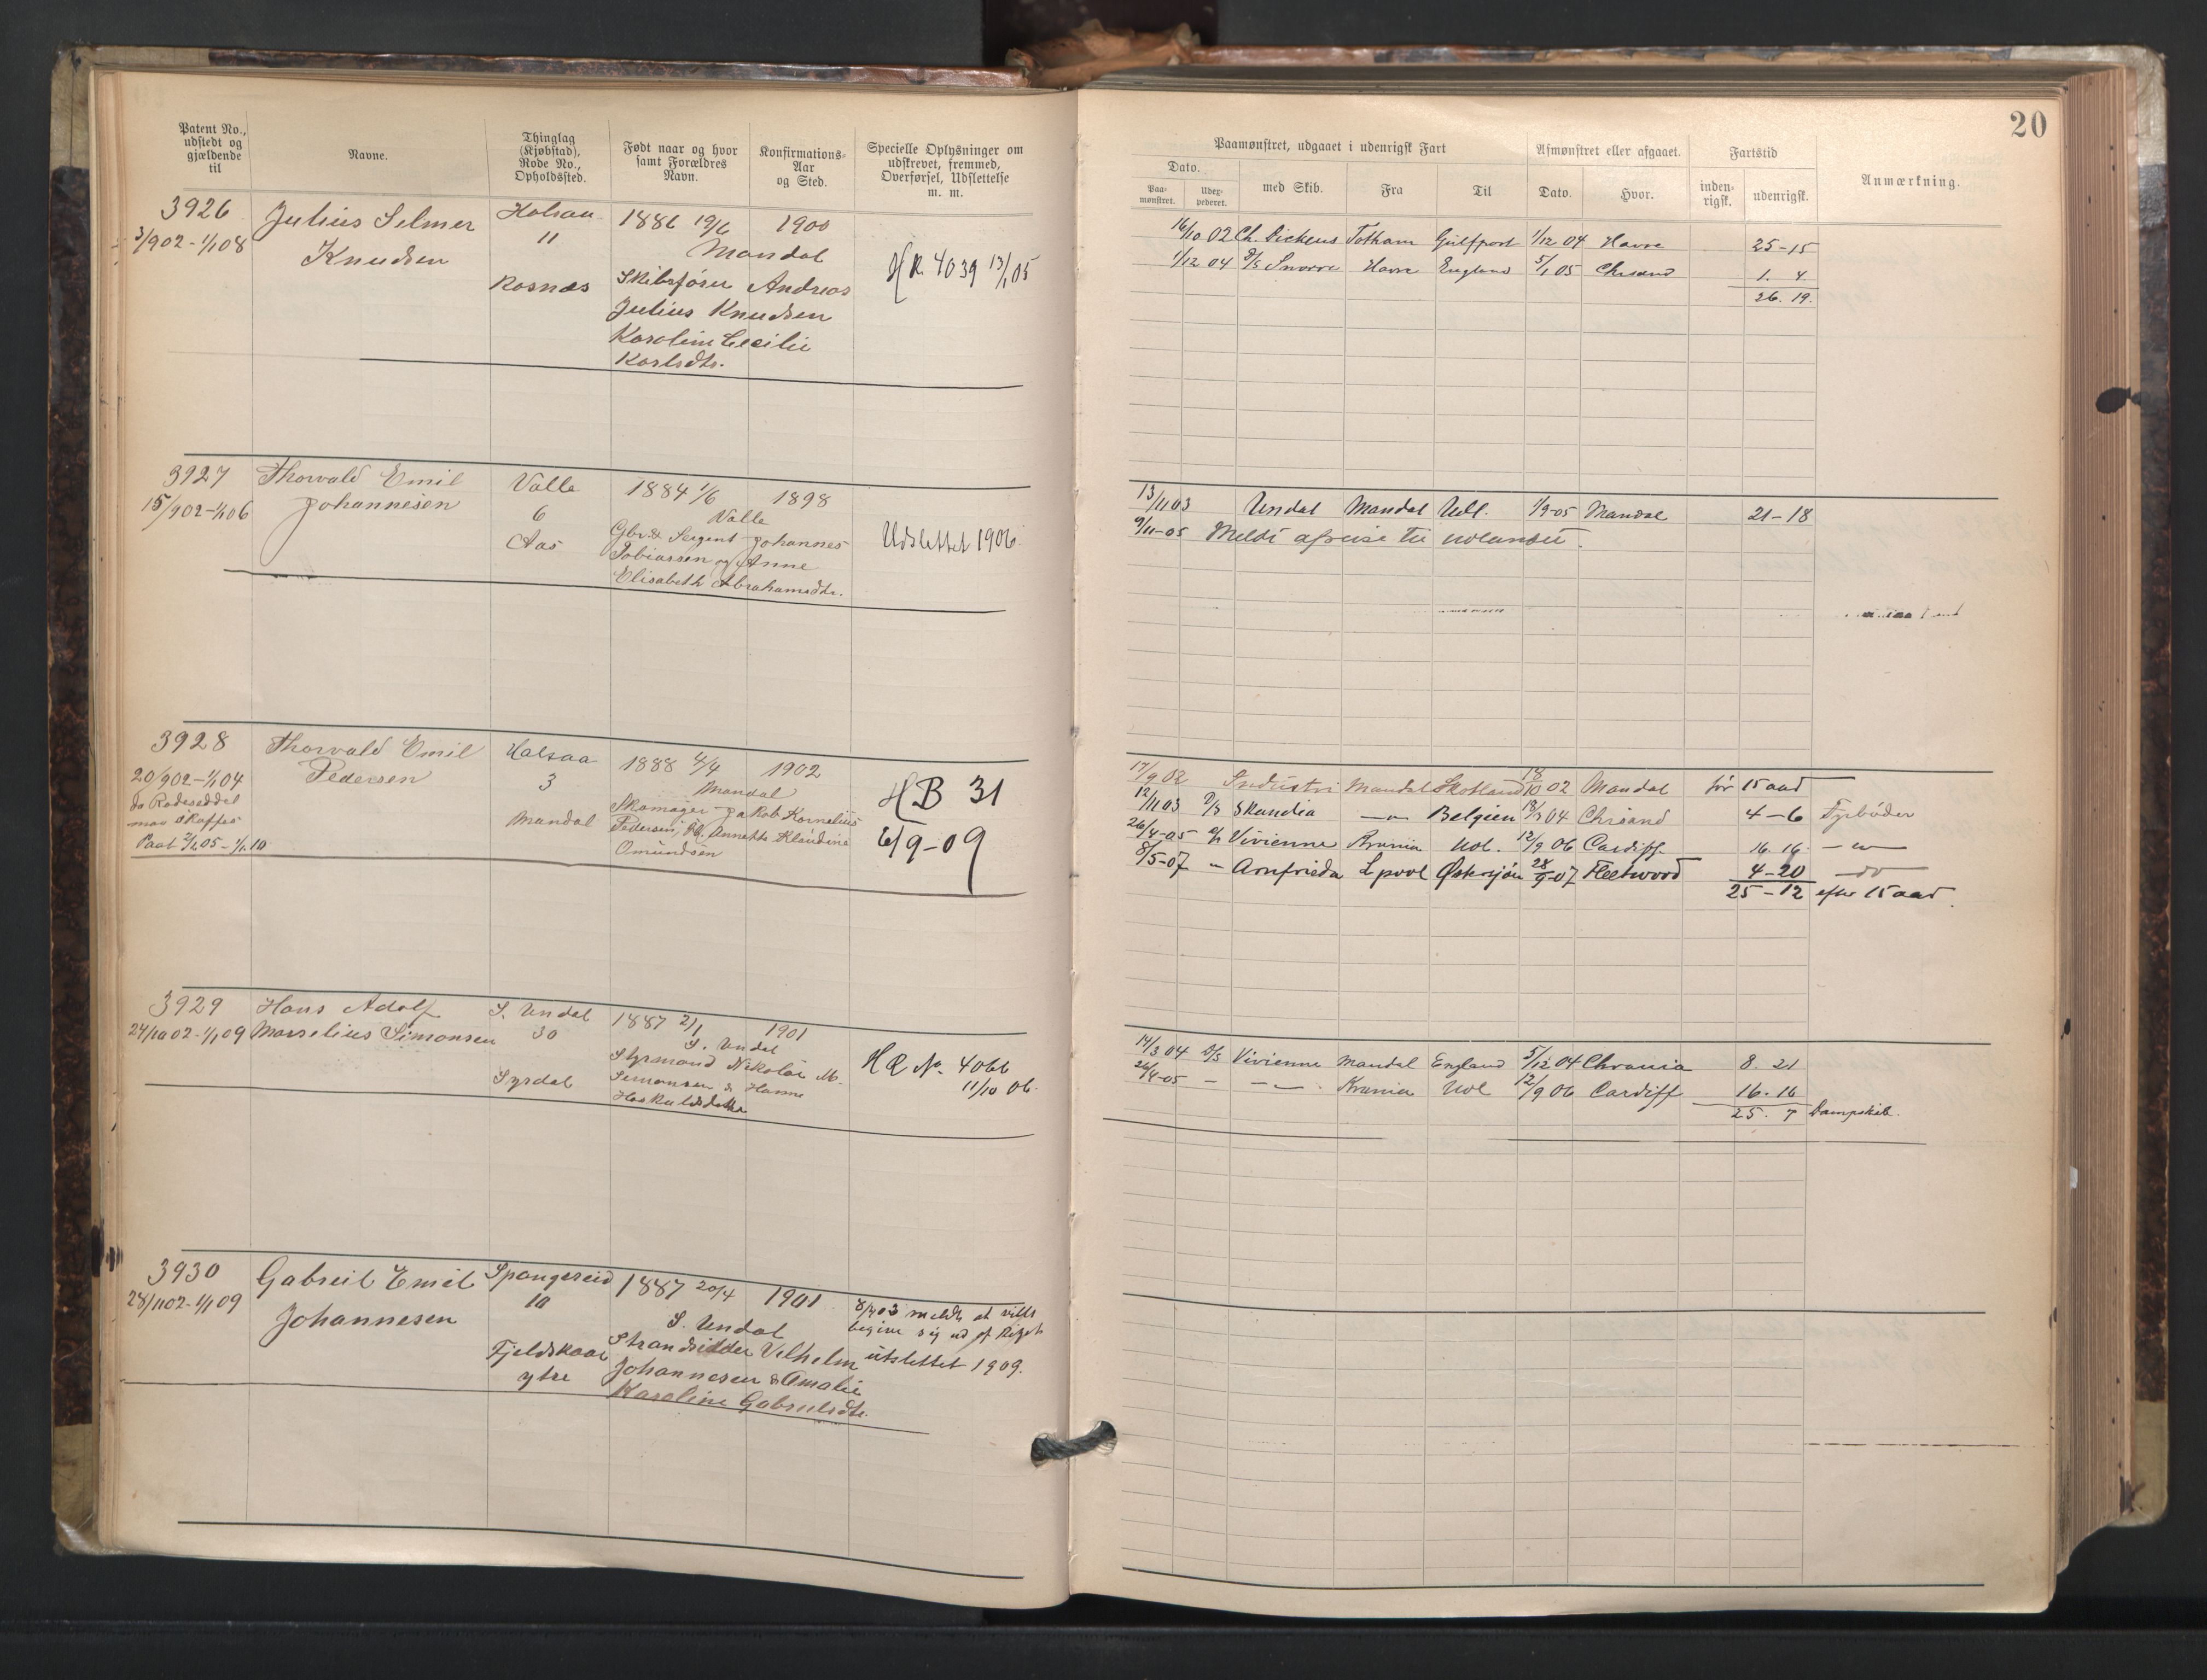 20
Patent No., udstedt og gjældende til
Navne.
Thinglag (Kjøbstad), Rode No., Opholdssted.
Født naar og hvor samt Forældres Navn.
Konfirmations-Aar og Sted.
Specielle Oplysninger om udskrevet, fremmed, Overførsel, Udslettelse m. m.
Paamønstret, udgaaet i udenrigsk Fart
Afmønstret eller afgaaet.
Fartstid
Anmærkning.
Dato.
Paa-mønstret.
med Skib.
Fra
Til
Dato.
Hvor.
inden-rigsk.
udenrigsk.
3926
3/9 02 - 1/1 08
Julius Selmer
Knudsen
Halsaa
11
Rosnæs
1886 19/6 1900
Mandal
Skibsfører Andreas
Julius Knudsen
Karoline Cecilie
Karlsdtr.
HR 4039 13/1 05
16/10 02 Ch. Dickens Totham Gulfport 1/12 04 Havre 25-15
1/12 04 D/S Snorre Havre England 5/1 05 Chrsand 1. 4
26. 19.
3927
15/9 02 - 1/1 06
Thorvald Emil
Johannesen
Valle
6
Aas
1884 1/6 1898
Valle
Gbr. & Sergent Johannes
Tobiassen og Anne
Elisabeth Abrahamsdtr.
Udslettet 1906.
13/11 03 Undal Mandal Udl. 1/9-05 Mandal 21-18
9/11-05 Meldt afreise til udlandet.
3928
20/9 02 - 1/1 04
da Rodeseddel
maa skaffes
Paat 2/6 05 - 1/1 10
Thorvald Emil
Pedersen
Halsaa
3
Mandal
1888 4/4 1902
Mandal
Skomager Jakob Kornelius
Pedersen, og Annette Klaudine
Omundsen
HB 31
6/9-09
17/9 02 Industri Mandal Skotland 18/10 02 Mandal før 15 aar
12/11 03 D/S Skandia -"- Belgien 18/3 04 Chrsand 4-6 Fyrbøder
26/4-05 D/S Vivienne Krania Udl. 12/9 06 Cardiff 16. 16 -"-
8/5-07 " Arnfrieda Lpool Østersjøn 28/9-07 Fleetwood 4-20 -do-
25-12 efter 15 aar.
3929
24/10 02 - 1/1 09
Hans Adolf
Marselius Simonsen
S. Undal
30
Syrdal
1887 2/1 1901
S. Undal
Styrmand Nikolai M.
Simonsen & Hanne
Haskuldsdatter
HR No. 4066
11/10 06.
14/3 04 D/S Vivienne Mandal England 5/12 04 Chrania 8. 21
26/4-05 - -"- Krania Udl 12/9 06 Cardiff 16. 16
25. 7 Dampskib.
3930
28/11 02 - 1/1 09
Gabriel Emil
Johannesen
Spangereid
10
Fjeldskaar
ytre
1887 20/4 1901
S. Undal
Strandsidder Vilhelm
Johannesen & Amalie
Karoline Gabrielsdtr.
meldt at ville
begive sig ud af Riget
utslettet 1909.